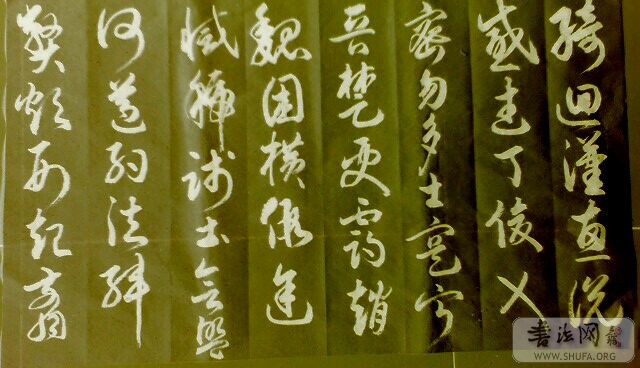 綺迴漢惠說
感武丁俊乂
密勿多士寔寧
晉楚更霸趙
魏困橫假途
滅虢踐土會盟
何遵約法韓
弊煩刑起翦
書法网
WWW.SHUFA.ORG